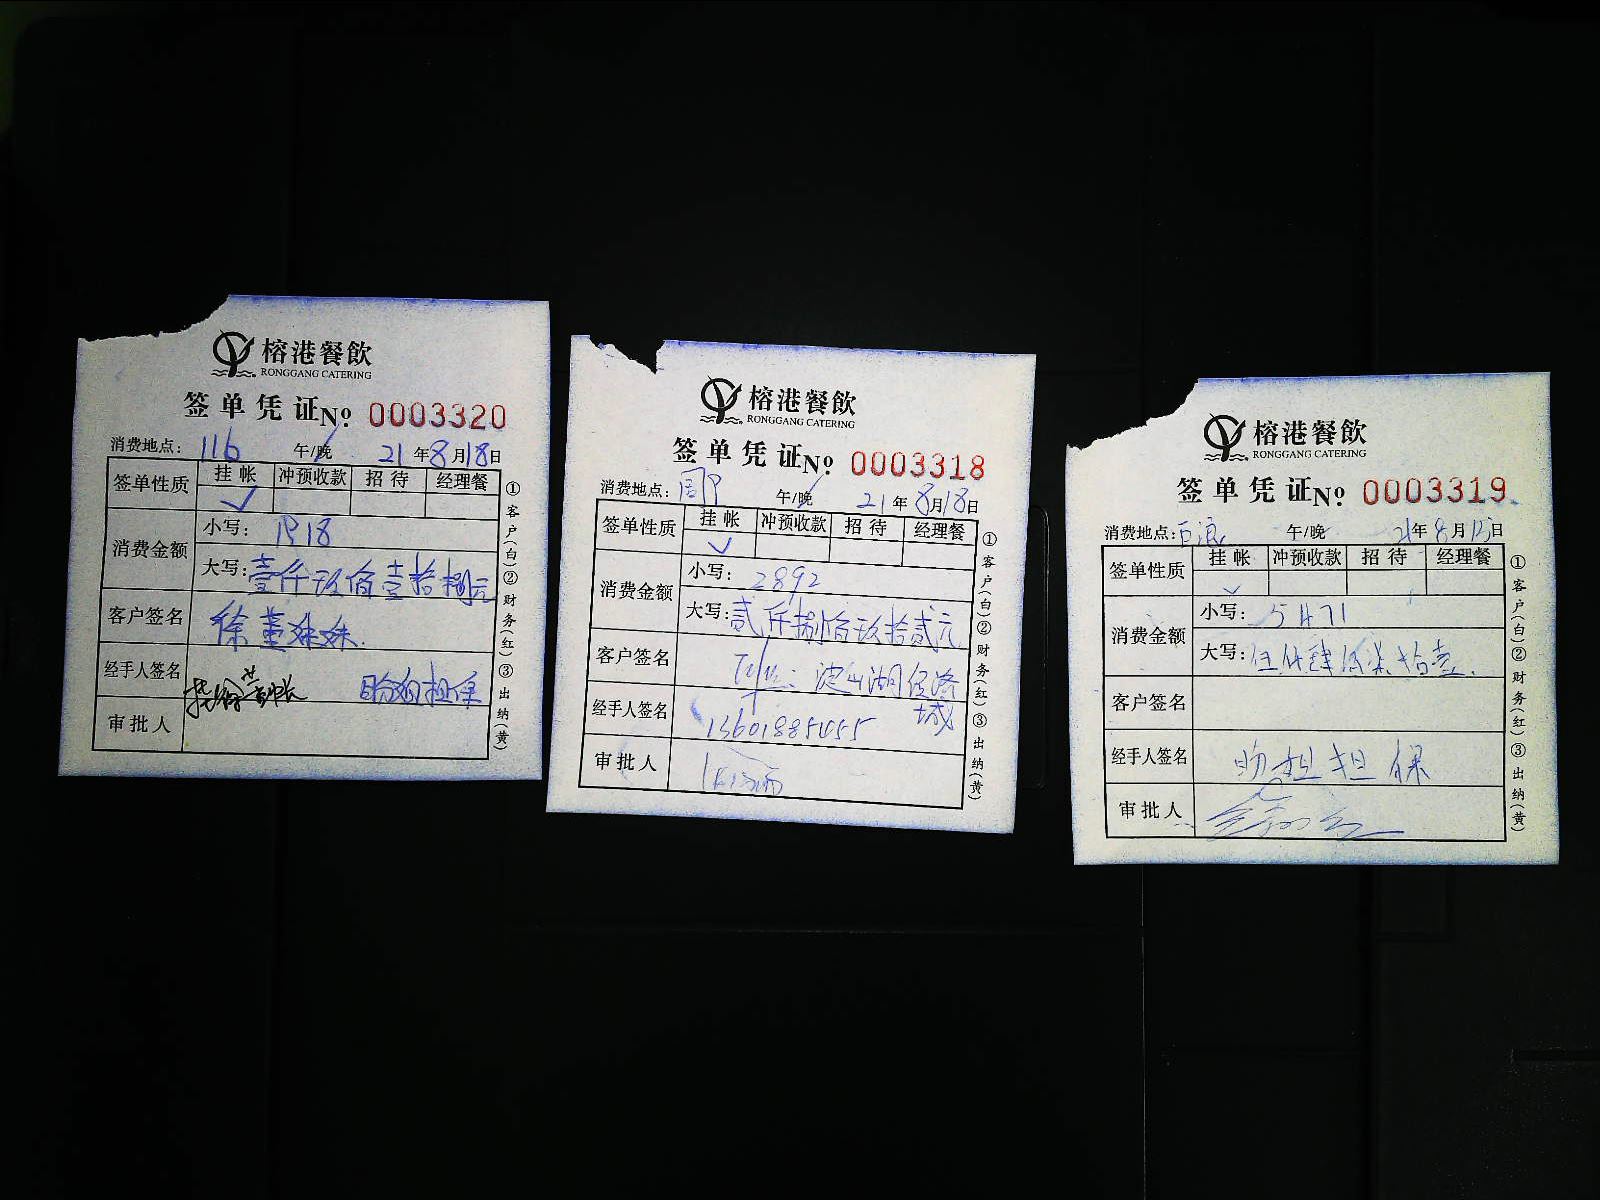 榕港餐飲
RONGGANG CATERING
签单凭证No. 0003320
消费地点: 116 午/晚 21年8月18日
签单性质 挂帐 冲预收款 招待 经理餐
✓
消费金额 小写: 1918
大写: 壹仟玖佰壹拾捌元
客户签名 徐董妹妹
经手人签名 担保
审批人
①客户(白)②财务(红)③出纳(黄)
榕港餐飲
RONGGANG CATERING
签单凭证No. 0003318
消费地点: 午/晚 21年8月18日
签单性质 挂帐 冲预收款 招待 经理餐
✓
消费金额 小写: 2892
大写: 贰仟捌佰玖拾贰元
客户签名 淀山湖
经手人签名 城
审批人
①客户(白)②财务(红)③出纳(黄)
榕港餐飲
RONGGANG CATERING
签单凭证No. 0003319
消费地点: 巨浪 午/晚 21年8月 日
签单性质 挂帐 冲预收款 招待 经理餐
✓
消费金额 小写: 5471
大写: 伍仟肆佰柒拾壹
客户签名
经手人签名 担保
审批人
①客户(白)②财务(红)③出纳(黄)